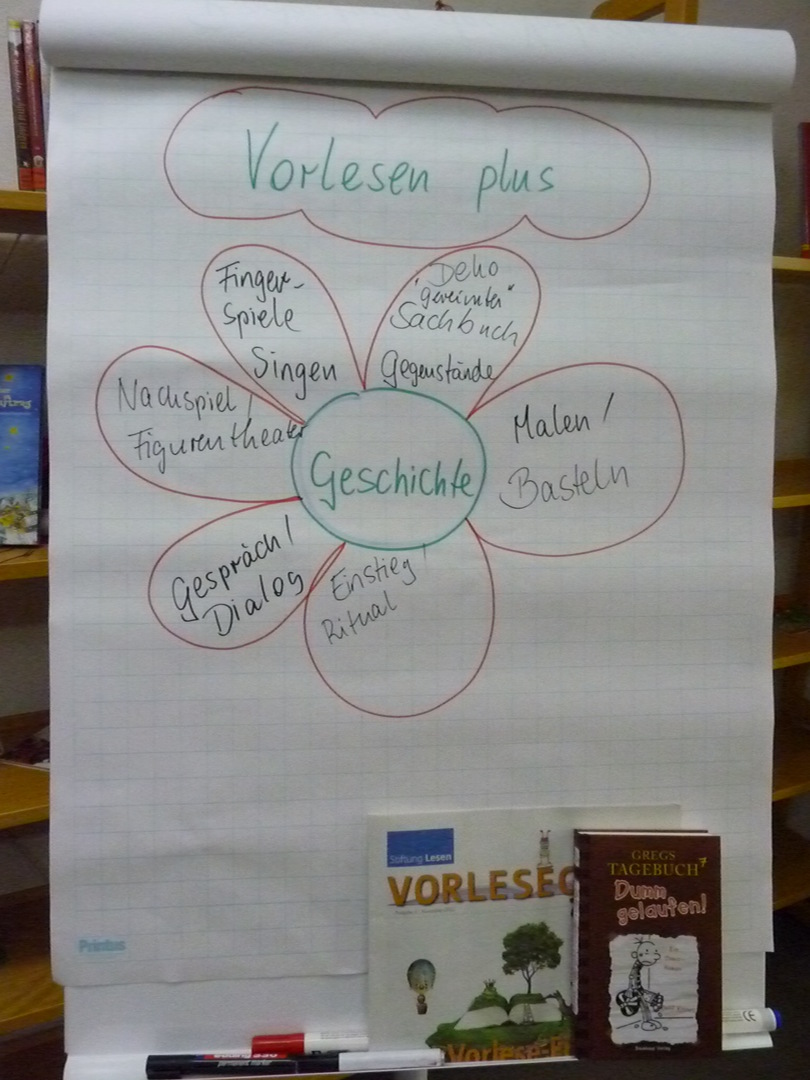 Vorlesen plus
Finger-
spiele
Singen
Deko
"gereimter"
Sachbuch
Gegenstände
Nachspiel /
Figurentheater
Malen /
Basteln
Geschichte
Gespräch /
Dialog
Einstieg /
Ritual
Stiftung Lesen
VORLESE
Vorlese-
GREGS
TAGEBUCH 7
Dumm
gelaufen!
Printus